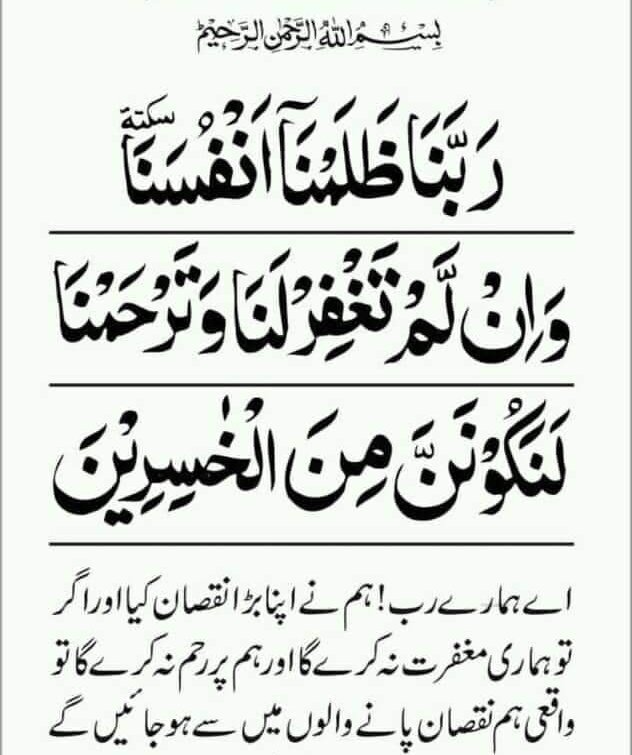 بِسْمِ اللهِ الرَّحْمٰنِ الرَّحِيْمِ
رَبَّنَا ظَلَمْنَآ اَنْفُسَنَا سكتة
وَاِنْ لَّمْ تَغْفِرْ لَنَا وَتَرْحَمْنَا
لَنَكُوْنَنَّ مِنَ الْخٰسِرِيْنَ
اے ہمارے رب! ہم نے اپنا بڑا نقصان کیا اور اگر
تو ہماری مغفرت نہ کرے گا اور ہم پر رحم نہ کرے گا تو
واقعی ہم نقصان پانے والوں میں سے ہو جائیں گے